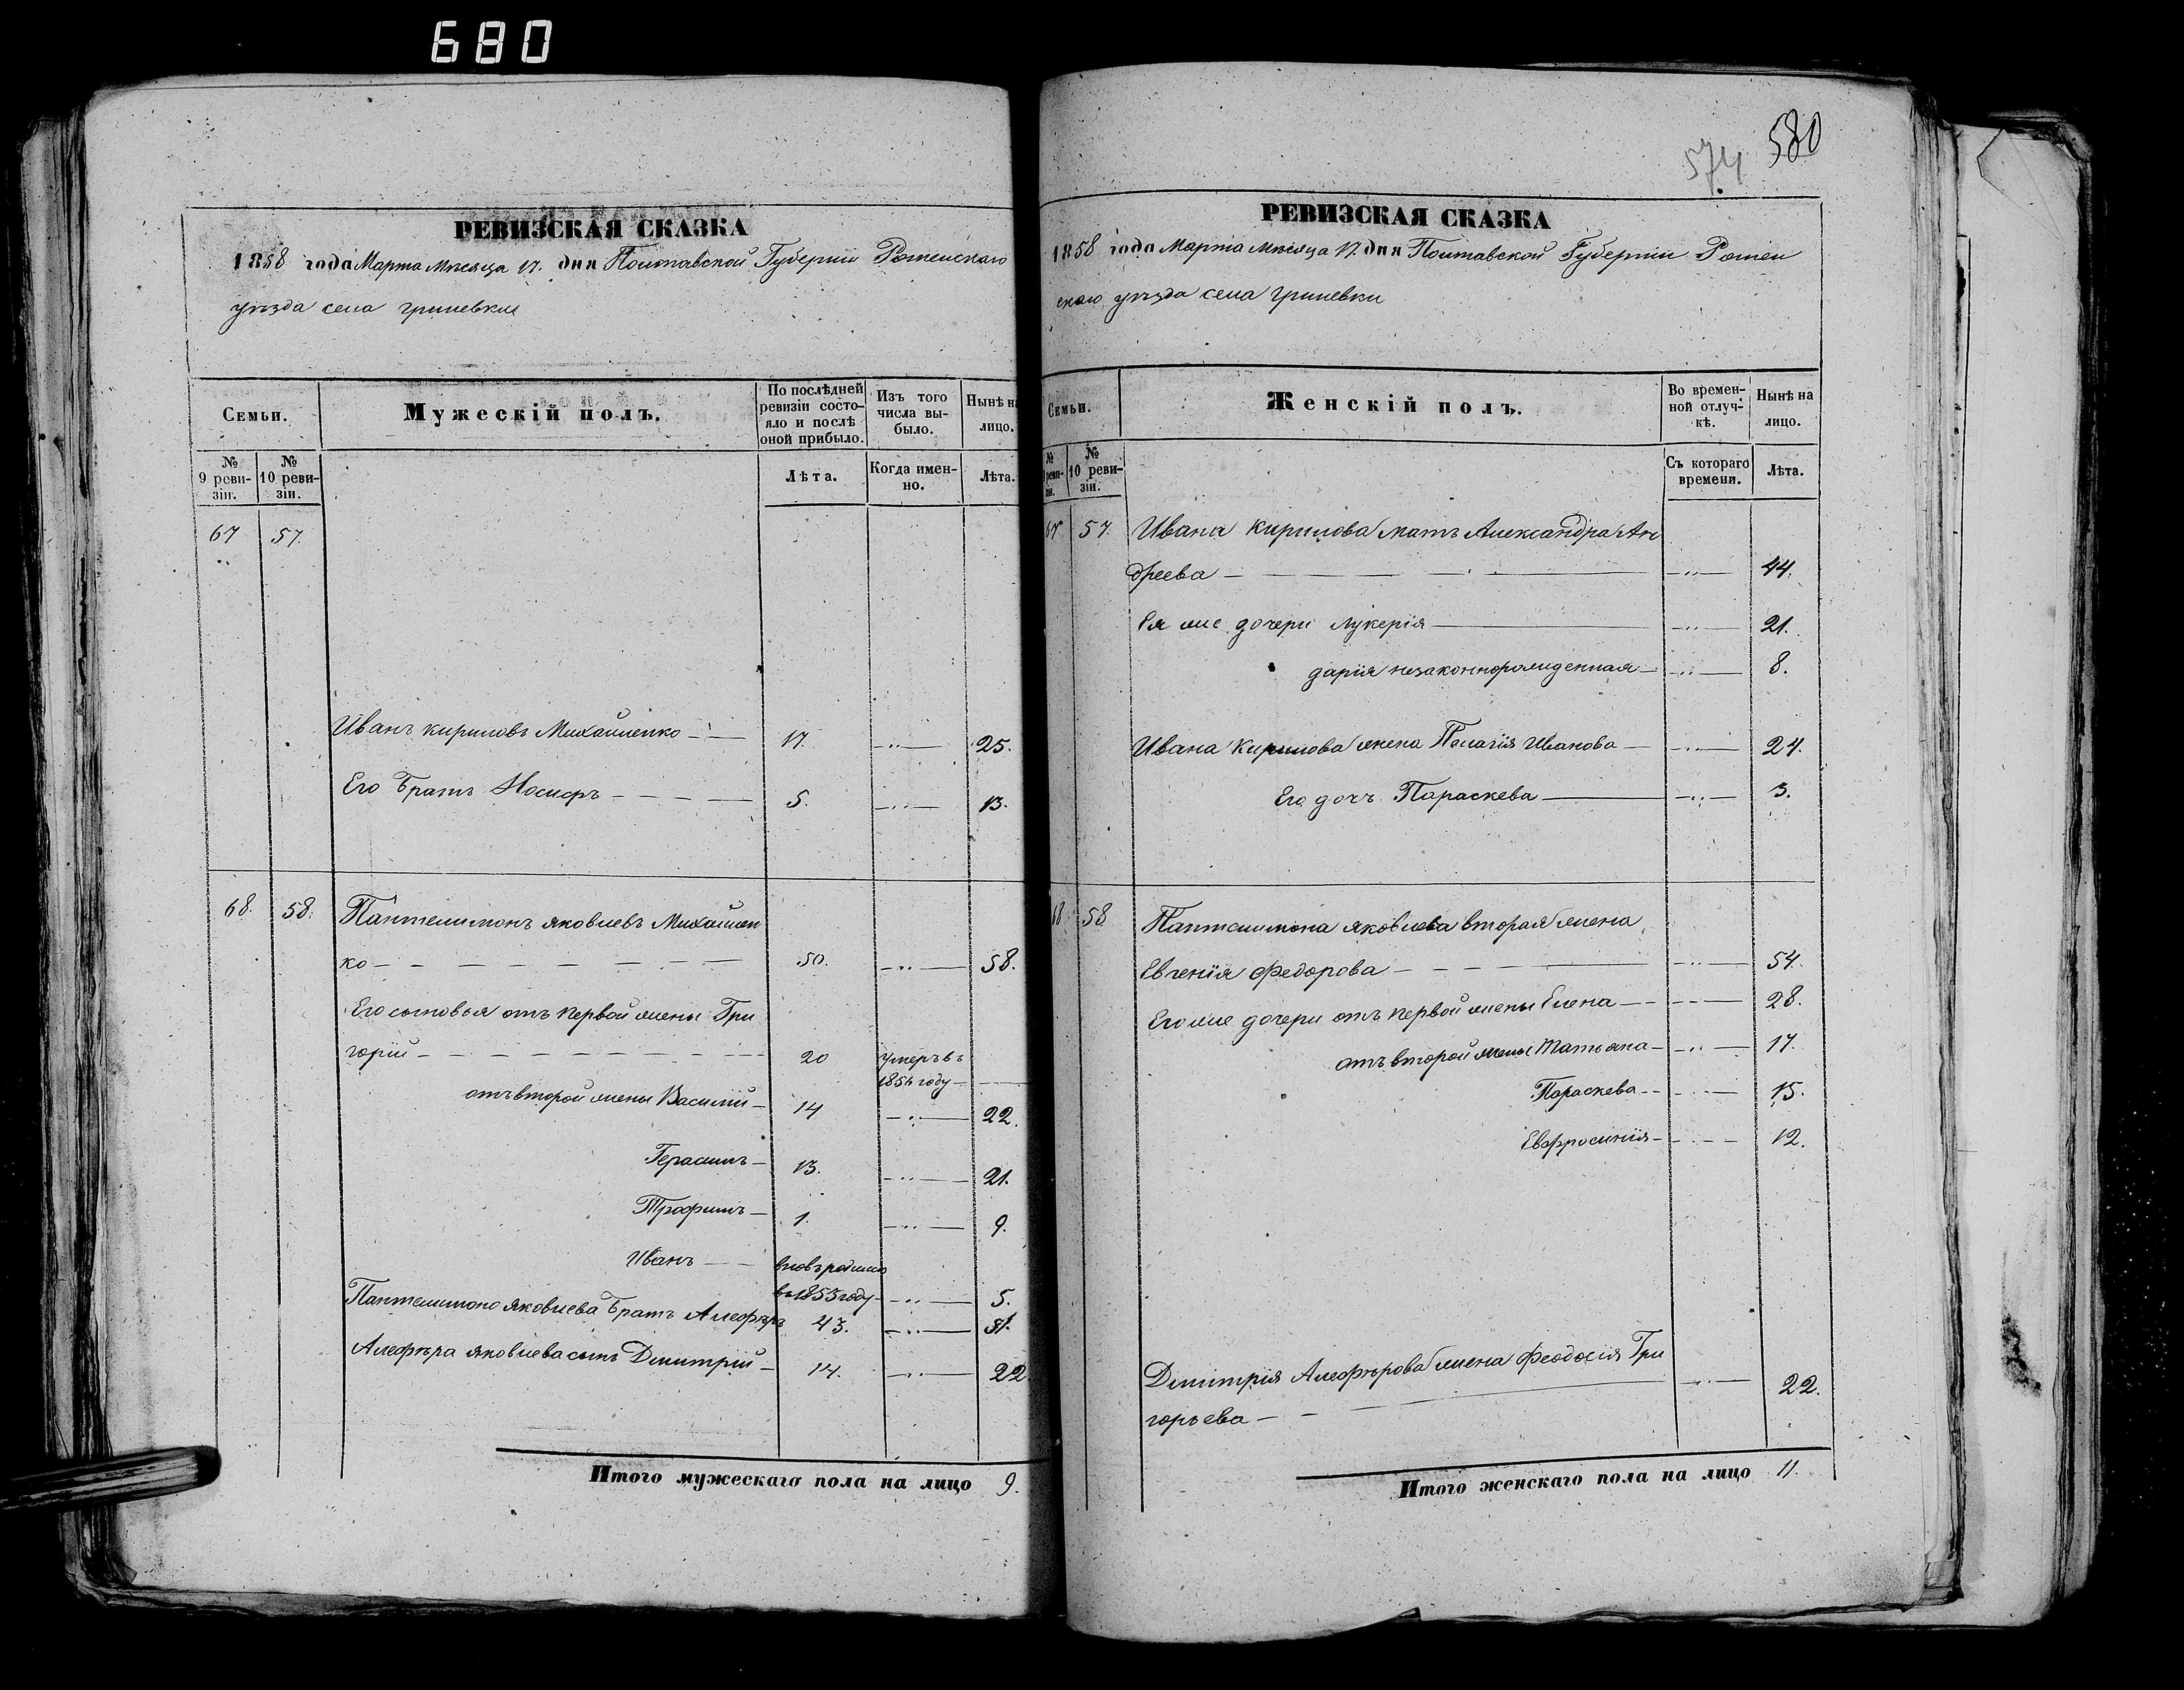 680
РЕВИЗСКАЯ СКАЗКА
1858 года Марта Мѣсяца 17. дня Полтавской Губерніи Роменскаго
уѣзда села Гриневки
Семьи.
Мужескій полъ.
По послѣдней ревизіи состояло и послѣ оной прибыло.
Изъ того числа выбыло.
Нынѣ на лицо.
№ 9 ревизіи.
№ 10 ревизіи.
Лѣта.
Когда именно.
Лѣта.
67 57.
Иванъ Кириловъ Михайленко 17. 25.
Его Братъ Иосифъ 5. 13.
68. 58. Пантелимонъ Яковлевъ Михайлен
ко 50. 58.
Его сыновья отъ первой жены Гри
горій 20 умеръ въ
1856 году
отъ второй жены Василий 14 22.
Герасимъ 13. 21.
Трофимъ 1. 9.
Иванъ вновь
въ 1853 году 5.
Пантелимона Яковлева Братъ Алефѣръ 43. 51.
Алефѣра Яковлева сынъ Дмитрій 14. 22
Итого мужескаго пола на лицо 9.
574 580
РЕВИЗСКАЯ СКАЗКА
1858 года Марта Мѣсяца 17. дня Полтавской Губерніи Ромен
скаго уѣзда села Гриневки
Семьи.
Женскій полъ.
Во временной отлучкѣ.
Нынѣ на лицо.
№ 9 ревизіи.
№ 10 ревизіи.
Съ котораго времени.
Лѣта.
67 57. Ивана Кирилова мать Александра Ан
дреева 44.
Ея же дочери Лукерія 21.
Дарія незаконнорожденная 8.
Ивана Кирилова жена Пелагія Иванова 24.
Его дочь Параскева 3.
68 58 Пантелимона Яковлева вторая жена
Евгенія Федорова 54.
Его же дочери отъ первой жены Елена 28.
отъ второй жены Татьяна 17.
Параскева 15.
Евфросинія 12.
Димитрія Алефѣрова жена Феодосія Гри
горьева 22.
Итого женскаго пола на лицо 11.